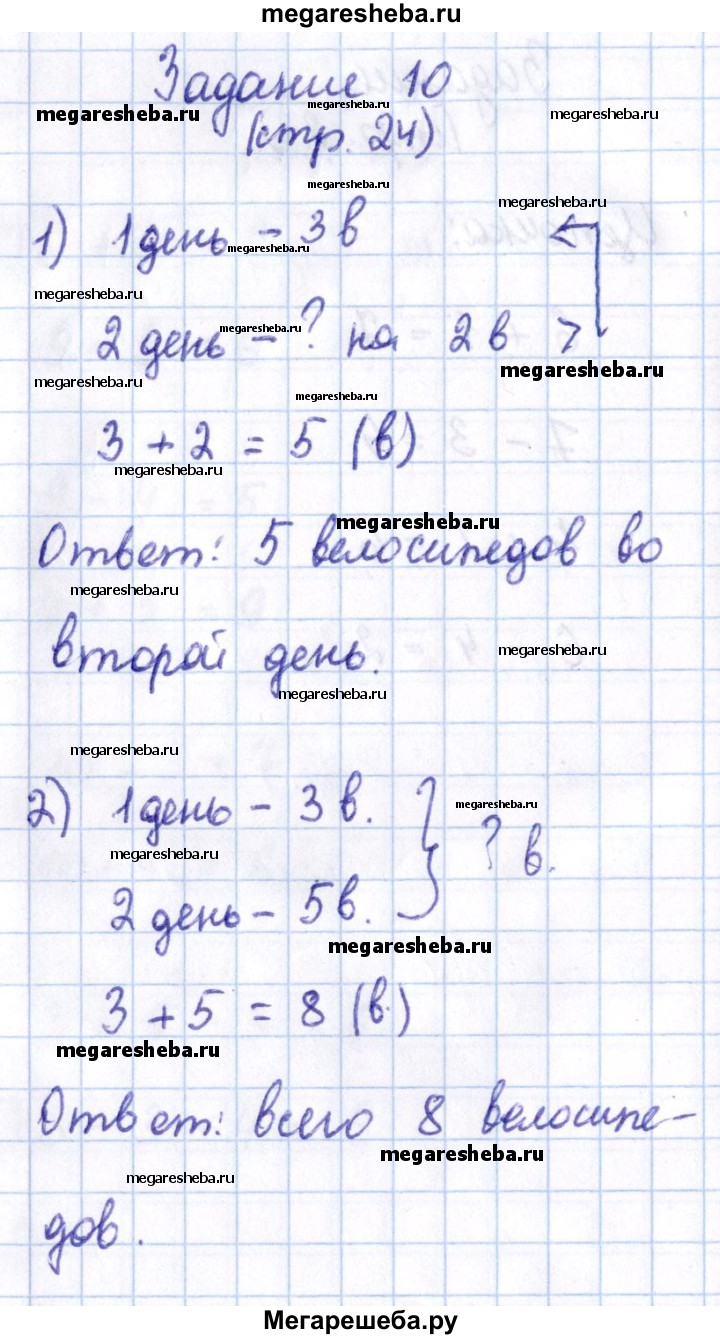 megaresheba.ru
Задание 10
megaresheba.ru megaresheba.ru megaresheba.ru
(стр. 24)
megaresheba.ru
megaresheba.ru
1) 1 день - 3 в
megaresheba.ru
megaresheba.ru
2 день - ? на 2 в >
megaresheba.ru
megaresheba.ru
megaresheba.ru
megaresheba.ru
3 + 2 = 5 (в)
megaresheba.ru
megaresheba.ru
Ответ: 5 велосипедов во
megaresheba.ru
второй день.
megaresheba.ru
megaresheba.ru
megaresheba.ru
2) 1 день - 3 в.
megaresheba.ru
? в.
megaresheba.ru
2 день - 5 в.
megaresheba.ru
3 + 5 = 8 (в.)
megaresheba.ru
Ответ: всего 8 велосипе-
megaresheba.ru
megaresheba.ru
дов.
Мегарешеба.ру